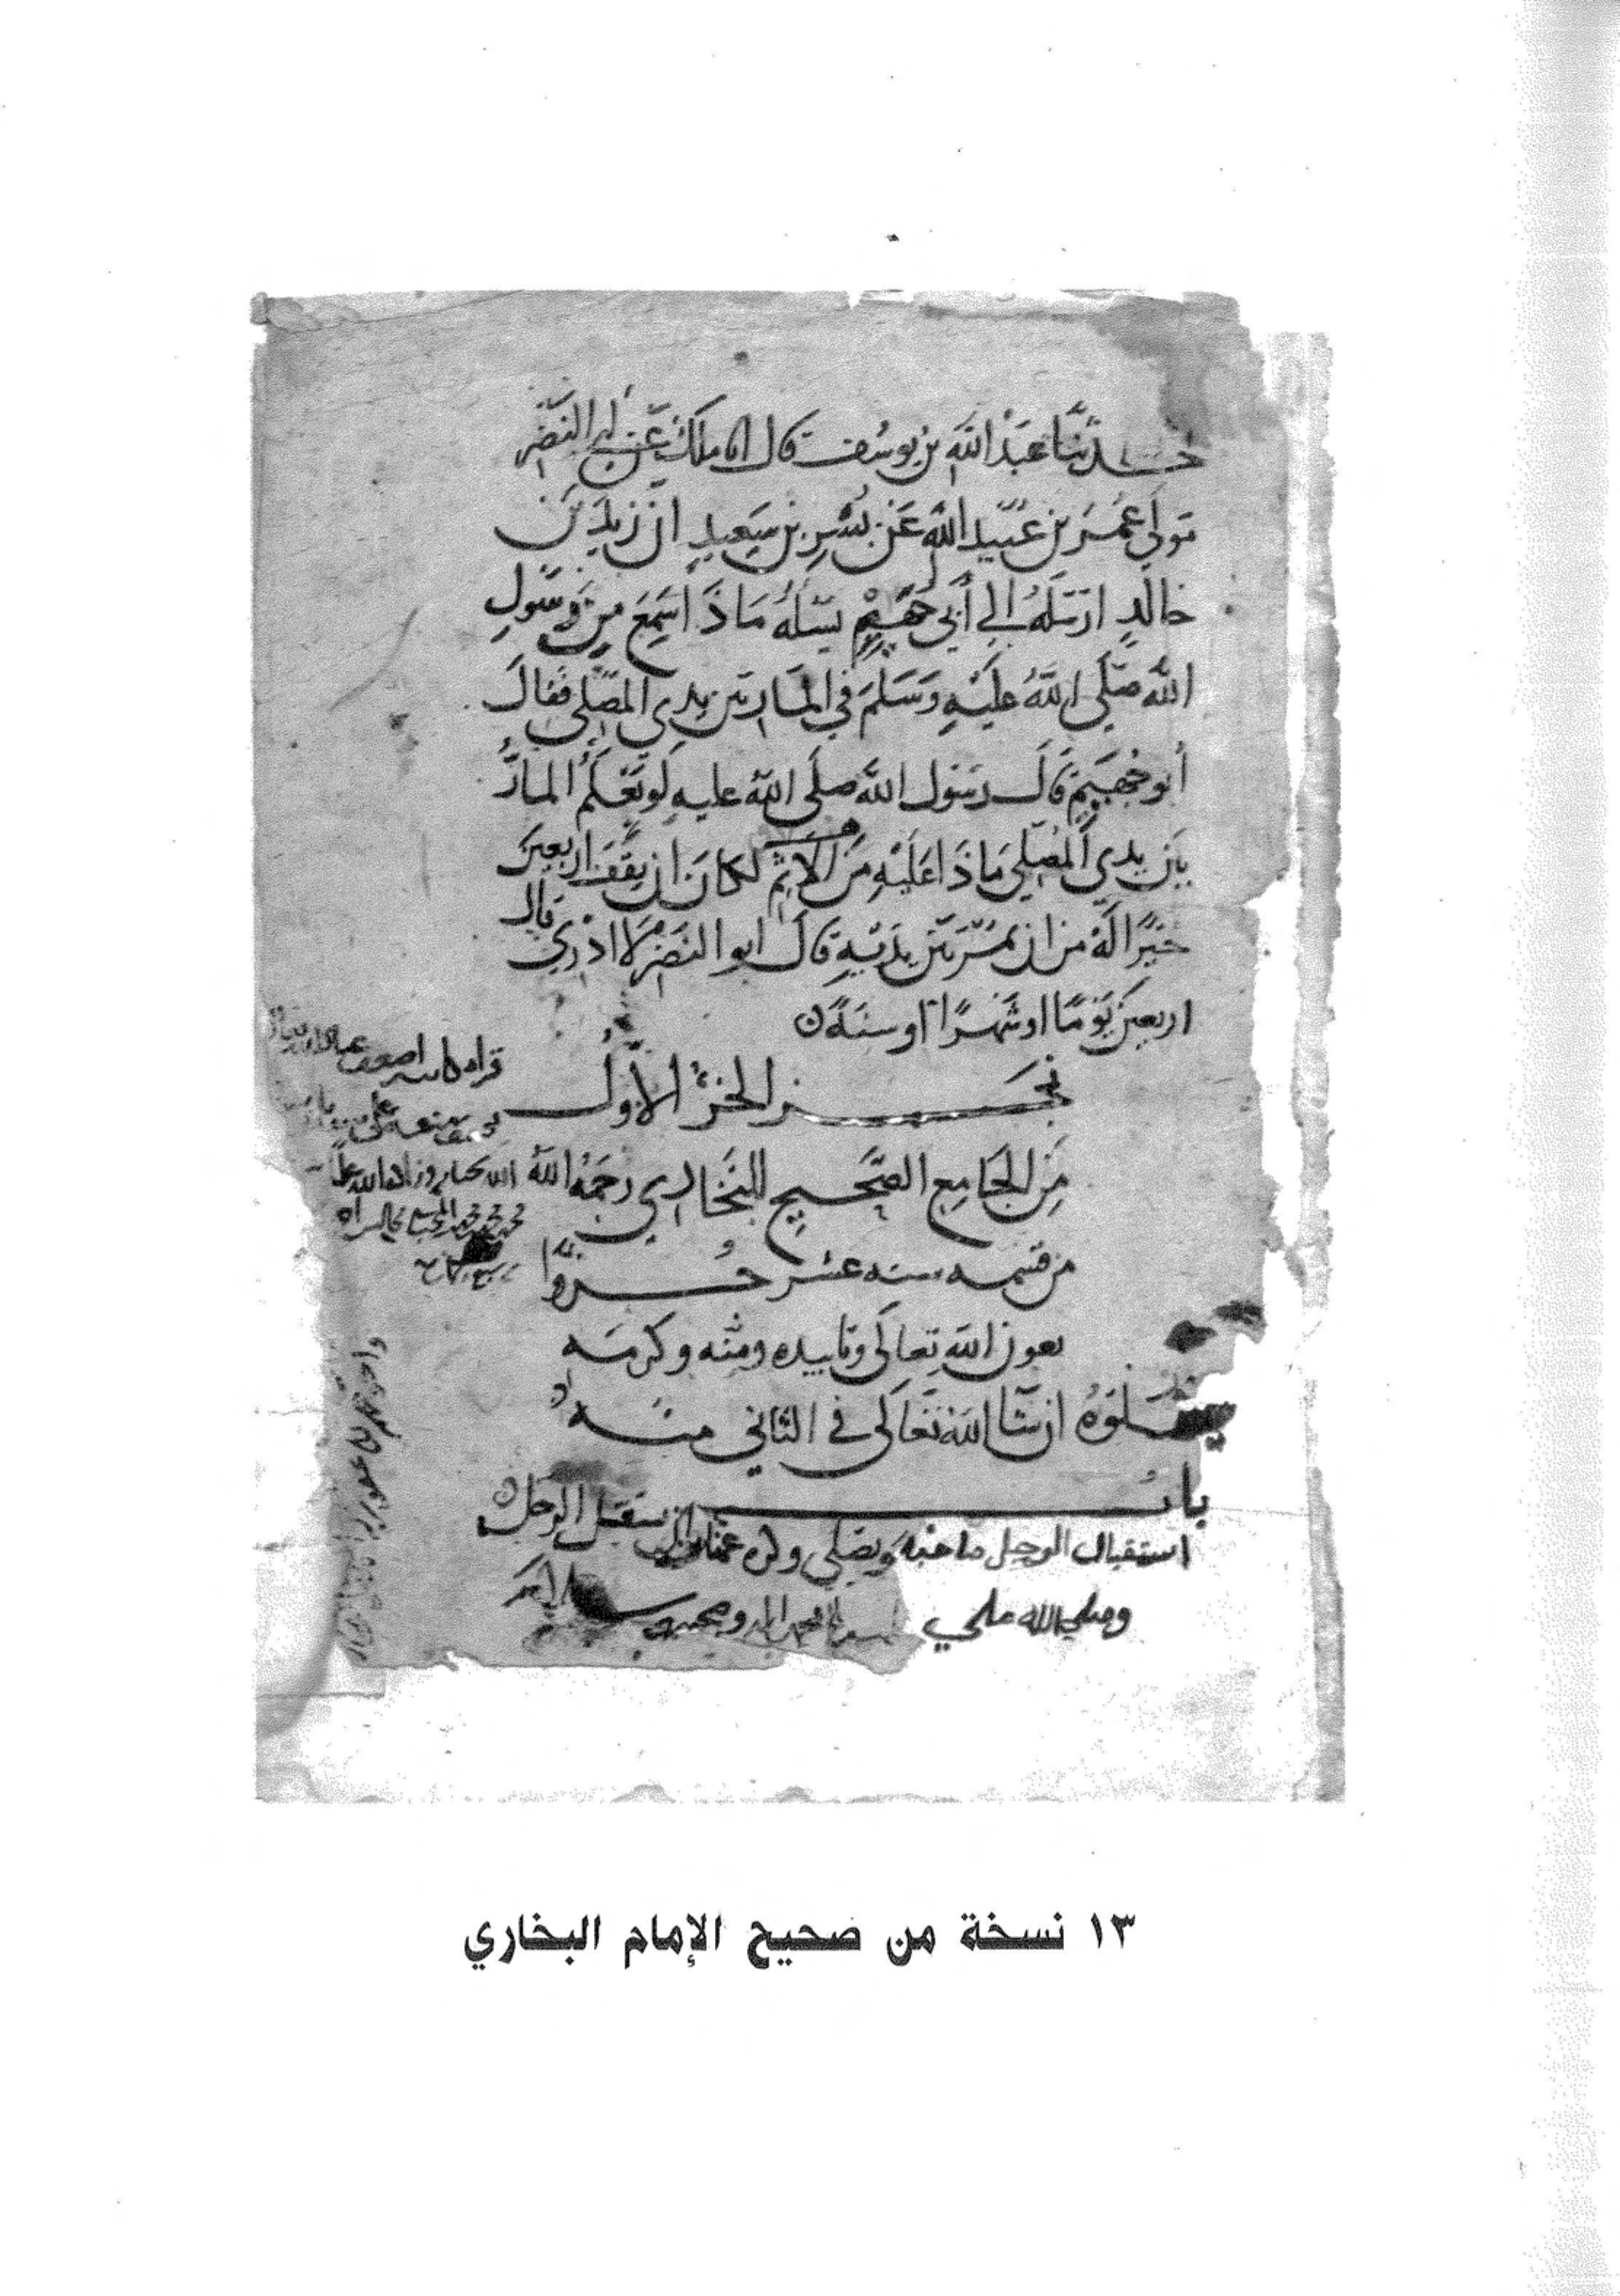 حدثنا عبد الله بن يوسف قال انا ملك عن ابي النضر
مولى عمر بن عبيد الله عن بسر بن سعيد ان زيد بن
خالد ارسله الى أبي جهيم يسله ماذا سمع من رسول
الله صلى الله عليه وسلم في المار بين يدي المصلي فقال
أبو جهيم قال رسول الله صلى الله عليه لو يعلم المار
بين يدي المصلي ماذا عليه من الاثم لكان ان يقف اربعين
خيرا له من ان يمر بين يديه قال ابو النضر لا ادري قال
اربعين يوما او شهرا او سنة
نجز الجزء الأول
من الجامع الصحيح للبخاري رحمه الله
من قسمه ستة عشر جزوا
بعون الله تعالى وتاييده ومنه وكرمه
يتلوه ان شا الله تعالى في الثاني منه
باب
استقبال الرجل صاحبه ويصلي وكره عثمان ان يستقبل الرجل
وصلى الله على
١٣ نسخة من صحيح الإمام البخاري